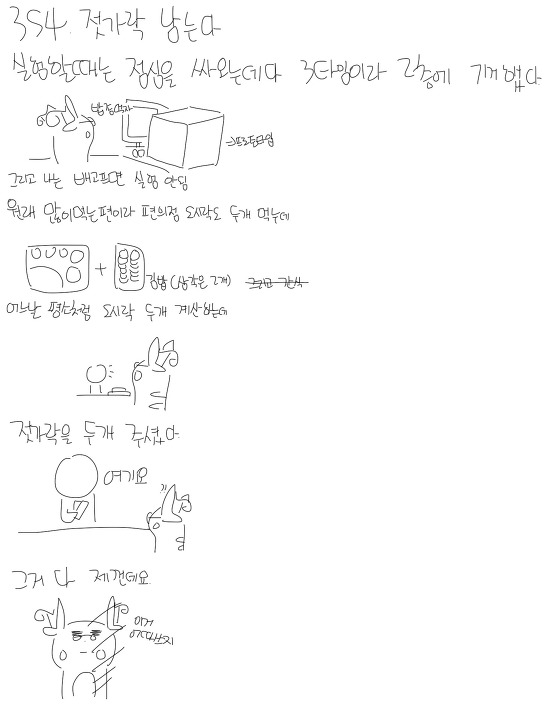 354. 젓가락 남는다
실험할때는 점심을 싸오는데다 3타임이라 2층에 기거했다
→프로토타입
그리고 나는 배고프면 실험 안됨
원래 많이먹는편이라 편의점 도시락도 두개 먹는데
+ 김밥 (삼각은 2개) 그리고 간식
어느날 평소처럼 도시락 두개 계산하는데
젓가락을 두개 주셨다
여기요
그거 다 제건데요
이거 어따쓰지